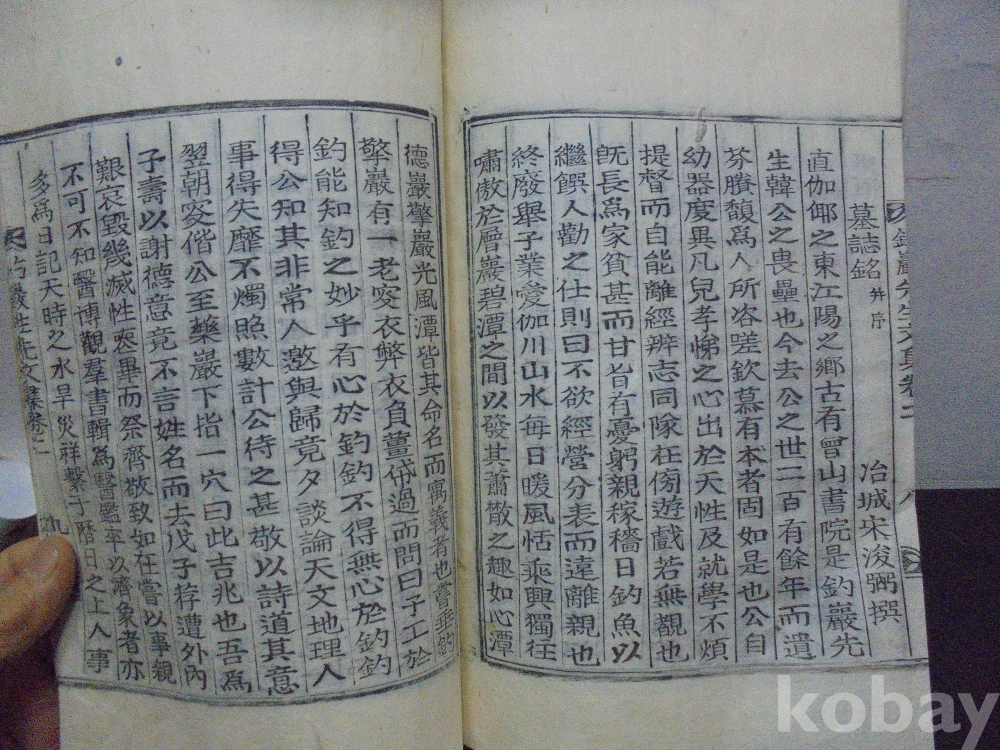 墓誌銘 并序
冶城宋浚弼撰
直伽倻之東江陽之鄉古有曾山書院是釣巖先
生韓公之畏壘也今去公之世二百有餘年而遺
芬賸馥爲人所咨嗟欽慕有本者固如是也公自
幼器度異凡兒孝悌之心出於天性及就學不煩
提督而自能離經辨志同隊在傍遊戲若無覩也
旣長爲家貧甚而甘旨有憂躬親稼穡日釣魚以
繼饌人勸之仕則曰不欲經營分表而遠離親也
終廢舉子業愛伽川山水每日暖風恬乘興獨徃
嘯傲於層巖碧潭之間以發其蕭散之趣如心潭
德巖擎巖光風潭皆其命名而寓義者也嘗垂釣
擎巖有一老叜衣弊衣負薑帒過而問曰子工於
釣能知釣之妙乎有心於釣釣不得無心於釣釣
得公知其非常人邀與歸竟夕談論天文地理人
事得失靡不燭照數計公待之甚敬以詩道其意
翌朝叜偕公至藥巖下指一穴曰此吉兆也吾爲
子壽以謝德意竟不言姓名而去戊子荐遭外內
艱哀毀幾滅性喪畢而祭齊敬致如在嘗以事親
不可不知醫博觀羣書輯爲醫鑑平以濟衆者亦
多爲日記天時之水旱災祥繫于曆日之上人事
釣巖先生文集卷之二
九
kobay